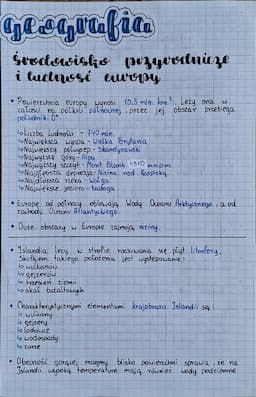 Geografia
Środowisko przyrodnicze
i ludność europy
• Powierzchnia Europy wynosi 10,5 mln. km². Leży ona w
całości na półkuli północnej, przez jej obszar przebiega
południk 0°.
↳ Liczba ludności - 740 mln.
↳ Największa wyspa - Wielka Brytania
↳ Największy półwysep - Skandynawski
↳ Najwyższe góry - Alpy
↳ Najwyższy szczyt - Mont Blank 4810 m n.p.m.
↳ Największa depresja - Nizina nad Kaspijską
↳ Najdłuższa rzeka - Wołga
↳ Największe jezioro - Ładoga
• Europę od północy oblewają Wody Oceanu Arktycznego i a od
zachodu Oceanu Atlantyckiego.
• Duże obszary w Europie zajmują niziny.
• Islandia leży w strefie rozsuwania się płyt litosfery.
Skutkiem takiego położenia jest występowanie:
↳ wulkanów
↳ gejzerów
↳ trzęsień ziemi
↳ skał bazaltowych
• Charakterystycznymi elementami krajobrazu Islandii są:
↳ wulkany
↳ gejzery
↳ lodowce
↳ wodospady
• Obecność gorącej magmy blisko powierzchni sprawia, że na
Islandii wysoką temperaturę mają również wody podziemne